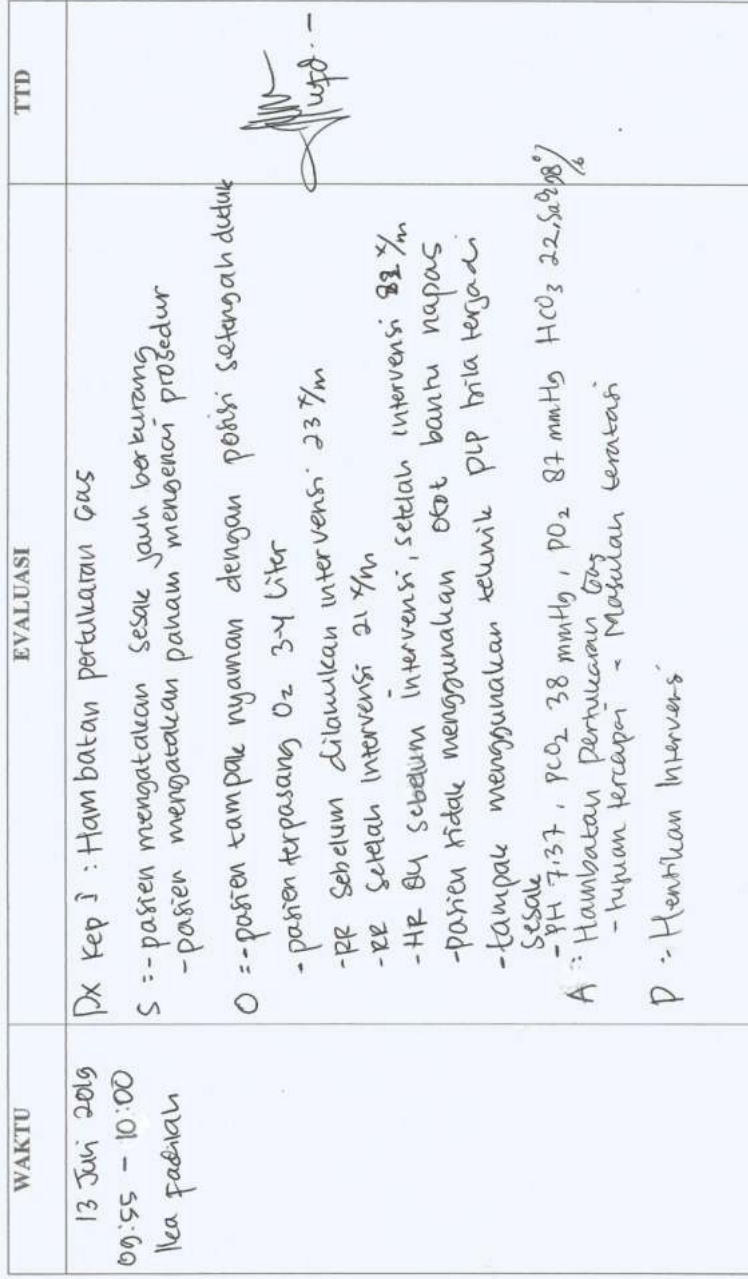 WAKTU
EVALUASI
TTD
13 Juni 2019
09:55 - 10:00
Ika Fadilah
Dx Kep 1 : Hambatan pertukaran Gas
S :- pasien mengatakan sesak jauh berkurang
- pasien mengatakan paham mengenai prosedur
O :- pasien tampak nyaman dengan posisi setengah duduk
- pasien terpasang O2 3-4 Liter
- RR Sebelum dilakukan intervensi 23 x/m
- RR Setelah Intervensi 21 x/m
- HR 84 sebelum intervensi, setelah intervensi x/m
- pasien tidak menggunakan otot bantu napas
- tampak menggunakan teknik PLP bila terjadi
Sesak
- PH 7.37, PCO2 38 mmHg, PO2 87 mmHg HCO3 22, SaO2 98%
A : Hambatan Pertukaran Gas
- tujuan tercapai - Masalah teratasi
P : Hentikan Intervensi